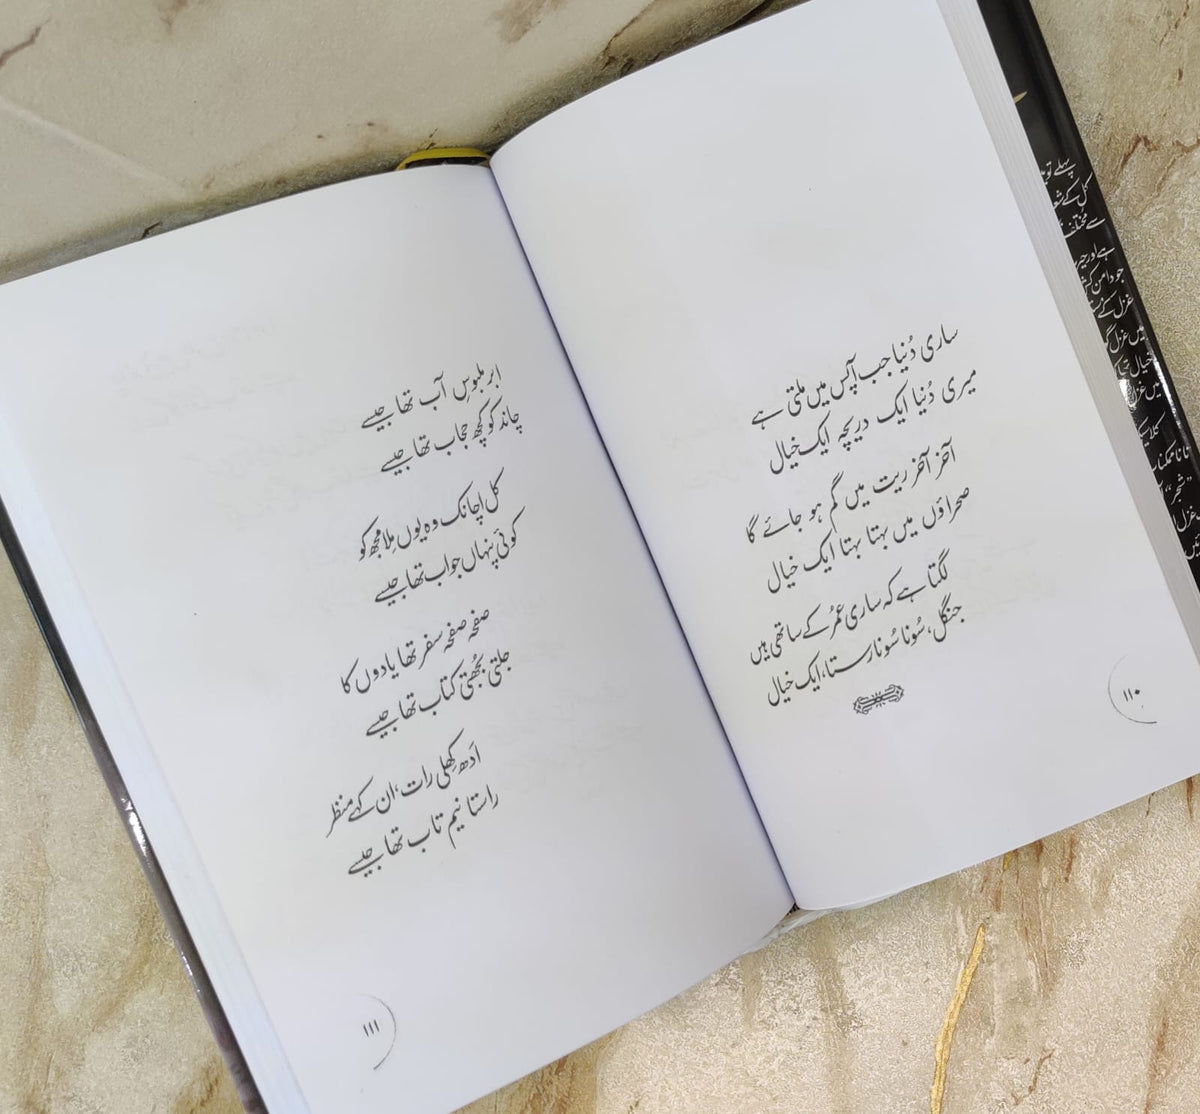 ساری دُنیا جب آپس میں ملتی ہے
میری دُنیا ایک دریچہ ایک خیال
آخر آخر ریت میں گم ہو جائے گا
صحراؤں میں بہتا بہتا ایک خیال
لگتا ہے کہ ساری عمُر کے ساتھی ہیں
جنگل، سُونا سُونا رستا، ایک خیال
۱۱۰
ابر ملبوسِ آب تھا جیسے
چاند کو کچھ حجاب تھا جیسے
کل اچانک وہ یوں مِلا مجھ کو
کوئی پنہاں جواب تھا جیسے
صفحہ صفحہ سفر تھا یادوں کا
جلتی بُجھتی کتاب تھا جیسے
اَدھ کِھلی رات، ان کہے منظر
راستا نیم تاب تھا جیسے
۱۱۱
پہلے تو
کل کے
سے مختلف
ہے اور
جو دامن
غزل کے
میں غزل
خیال
میں غزل